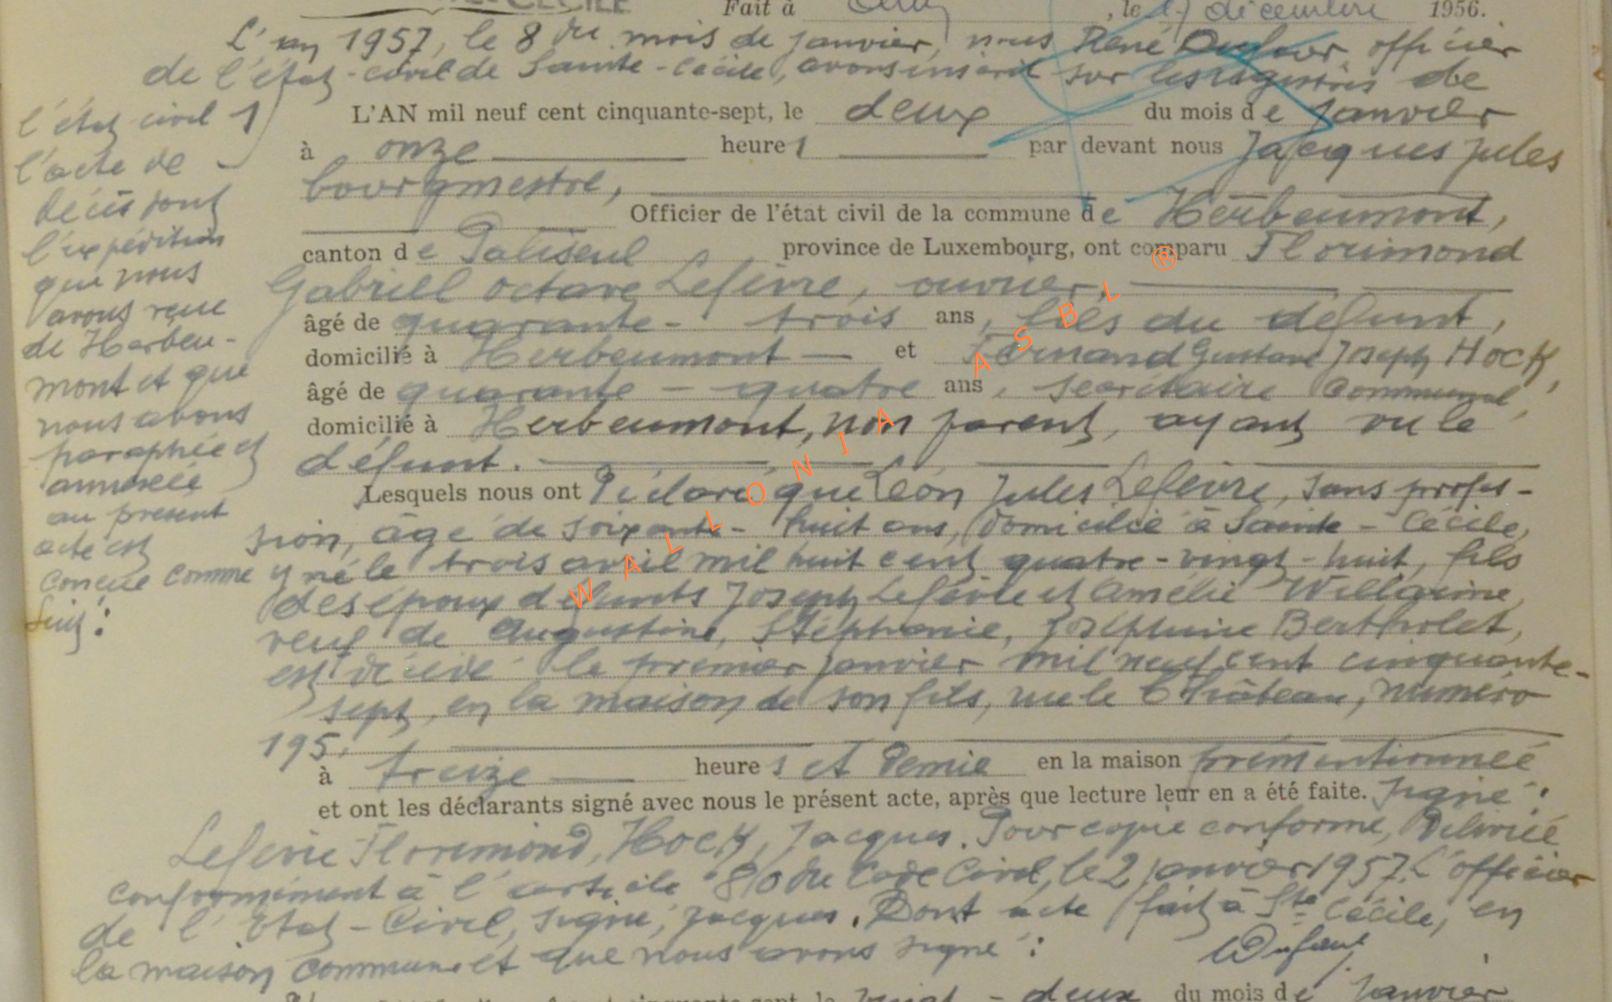 CÉCILE Fait à , le 17 décembre 1956.
L'an 1957, le 8 du mois de janvier, nous René Dufour officier
de l'état-civil de Sainte-Cécile, avons inscrit sur les registres de
l'état civil 1
l'acte de
décès dont
l'expédition
que nous
avons reçue
de Herbeu-
mont et que
nous avons
paraphée et
annexée
au présent
acte est
conçue comme
suit :
L'AN mil neuf cent cinquante-sept, le deux du mois de Janvier
à onze heures par devant nous Jacques Jules
bourgmestre,
Officier de l'état civil de la commune de Herbeumont,
canton de Paliseul province de Luxembourg, ont comparu Florimond
Gabriel Octave Lefèvre, ouvrier,
âgé de quarante-trois ans, fils du défunt,
domicilié à Herbeumont et Fernand Gustave Joseph Hock,
âgé de quarante-quatre ans, secrétaire communal,
domicilié à Herbeumont, non parent, ayant vu le
défunt.
Lesquels nous ont déclaré que Léon Jules Lefèvre, sans profes-
sion, âgé de soixante-huit ans, domicilié à Sainte-Cécile,
y né le trois avril mil huit cent quatre-vingt-huit, fils
des époux défunts Joseph Lefèvre et Amélie Willaime,
veuf de Augustine, Stéphanie, Joséphine Bertholet,
est décédé le premier janvier mil neuf cent cinquante-
sept, en la maison de son fils, rue le Château, numéro
195.
à treize heures et demie en la maison prémentionnée
et ont les déclarants signé avec nous le présent acte, après que lecture leur en a été faite. Signé :
Lefèvre Florimond, Hock, Jacques. Pour copie conforme, Délivrée
conformément à l'article 80 du Code Civil, le 2 janvier 1957. L'officier
de l'Etat-Civil, signé, Jacques. Dont acte fait à Ste Cécile, en
la maison commune et que nous avons signé :
Dufour
deux du mois de Janvier
WALLONIA ASBL ®